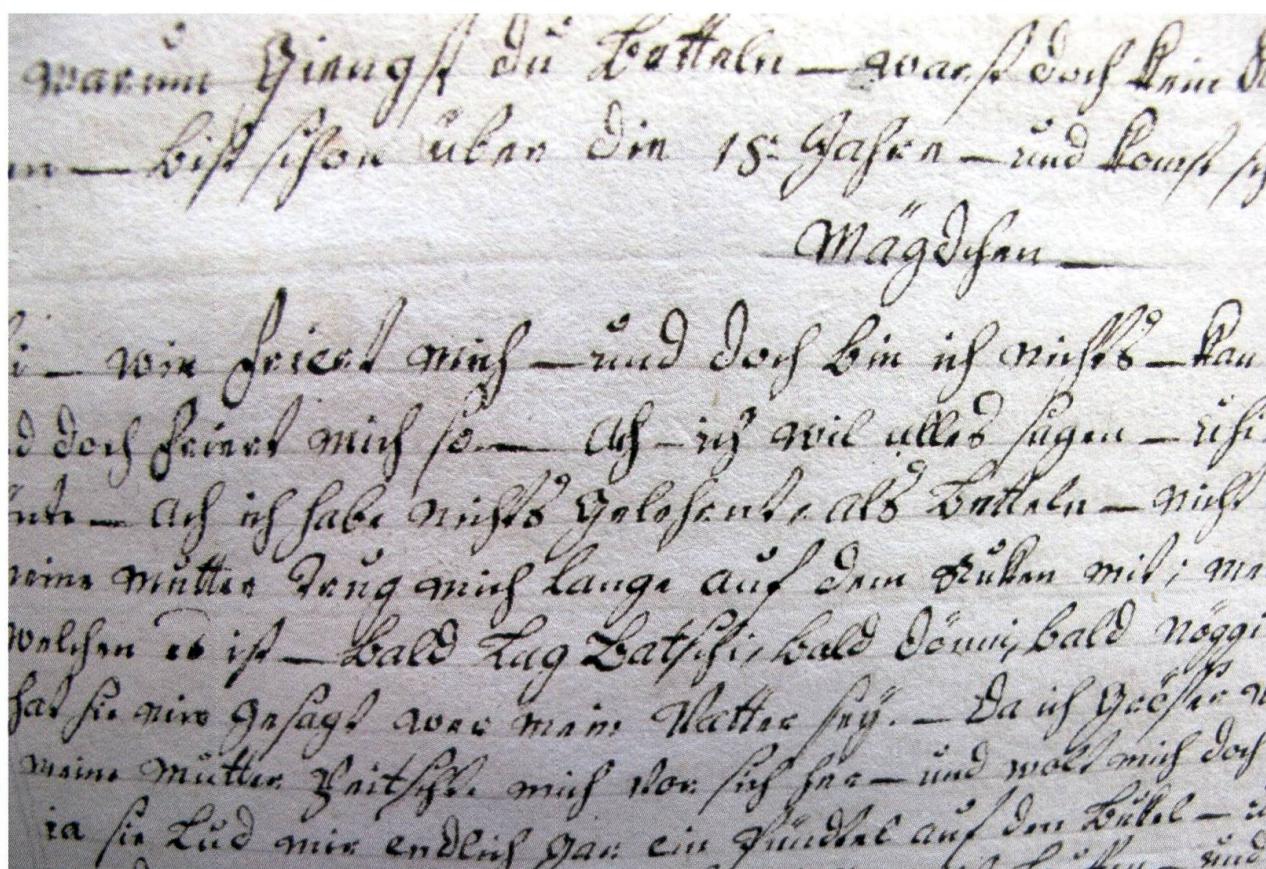 warum Giengst du Betteln – warst doch kein
– bist schon über die 18. Jahre – und komst
Mägdchen –
– wie friert mich – und doch bin ich nichts – kan
doch friert mich so – Ach – ich wil alles sagen –
– Ach ich habe nichts gelehrnt, als Betteln – nicht
meine Mutter trug mich lange auf dem Ruken mit;
welchen es ist – bald Lug Batschi, bald Dönni, bald Nöggi
hat sie mir gesagt wer mein Vatter seÿ. – Da ich Gröser
meine Mutter Peitschte mich vor sich her – und wolt mich doch
ia sie Lud mir endlich gar ein Pündtel auf den Bukel –
und